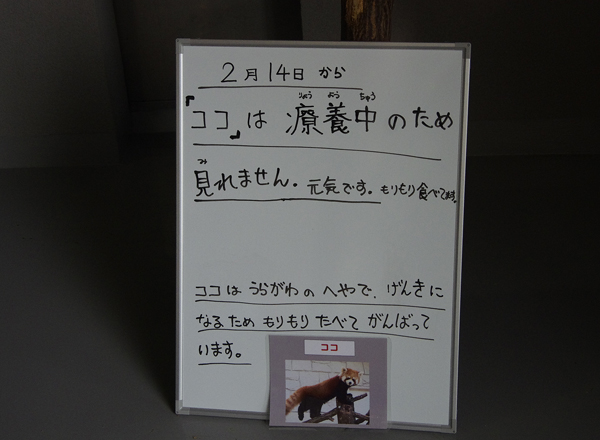 2月14日から
『ココ』は療養中のため
りょう よう ちゅう
見れません。元気です。もりもり食べてます。
み
ココはうらがわのへやで、げんきに
なるためもりもりたべてがんばって
います。
ココ